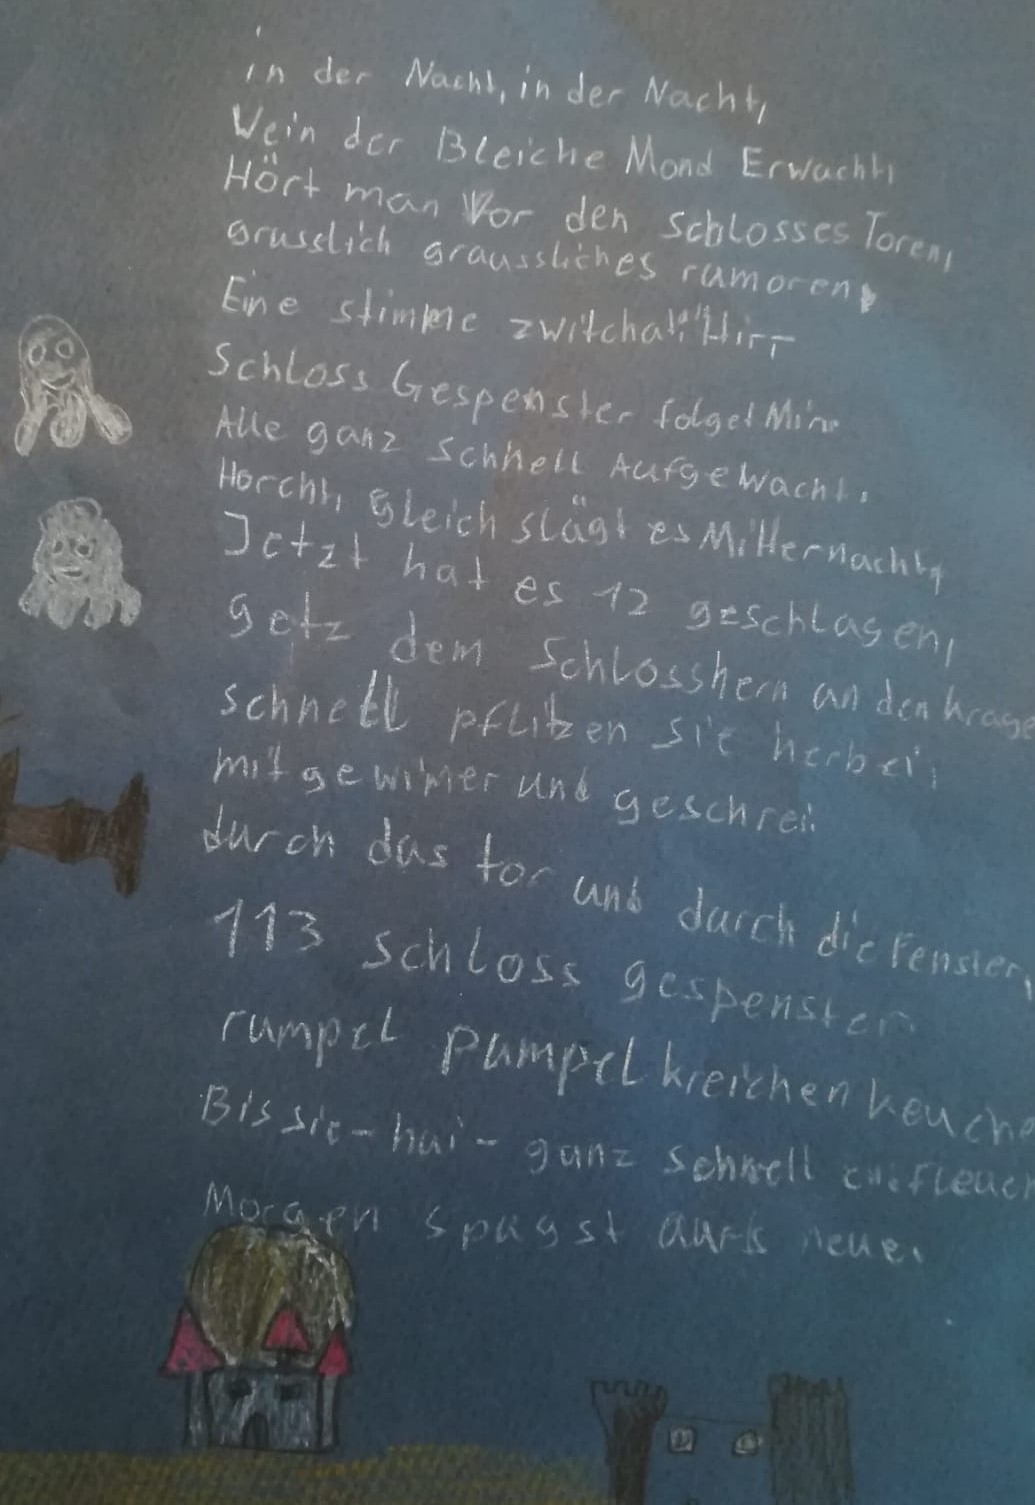 in der Nacht, in der Nacht,
Wein der Bleiche Mond Erwacht,
Hört man Vor den Schlosses Toren,
grusslich graussliches rumoren,
Eine stimme zwitcha
Schloss Gespenster folget Mir
Alle ganz Schnell Aufgewacht.
Horcht, gleich slägt es Mitternacht,
Jetzt hat es 12 geschlagen,
getz dem Schlosshern an den
schnell pflitzen sie herbei,
mit gewimer und geschrei
durch das tor und durch die Fenster,
113 schloss gespenster
rumpel pumpel kreichen
Bis sie - hui - ganz schnell
Morgen spugst aufs neue.